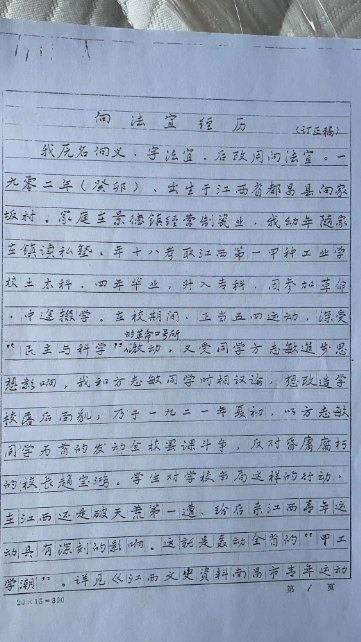 向法宜经历
(订正稿)
我原名向义,字法宜,后改用向法宜。一
九零二年(癸卯),出生于江西省都昌县向家
坂村。家庭在景德镇经营制瓷业,我幼年随家
在镇读私塾。年十八考取江西第一甲种工业学
校土木科,四年毕业,升入专科,因参加革命
,中途辍学。在校期间,正当五四运动,深受
的革命口号所
“民主与科学”激动,又受同学方志敏进步思
想影响,我和方志敏同学时相议论,想改造学
校落后面貌;乃于一九二一年夏初,以方志敏
同学为首的发动全校罢课斗争,反对昏庸腐朽
的校长赵宝鸿。学生对学校当局这样的行动,
在江西还是破天荒第一遭,给后来江西青年运
动具有深刻的影响。这就是轰动全省的“甲工
学潮”。详见《江西文史资料南昌市青年运动
20×15=300
第 1 页